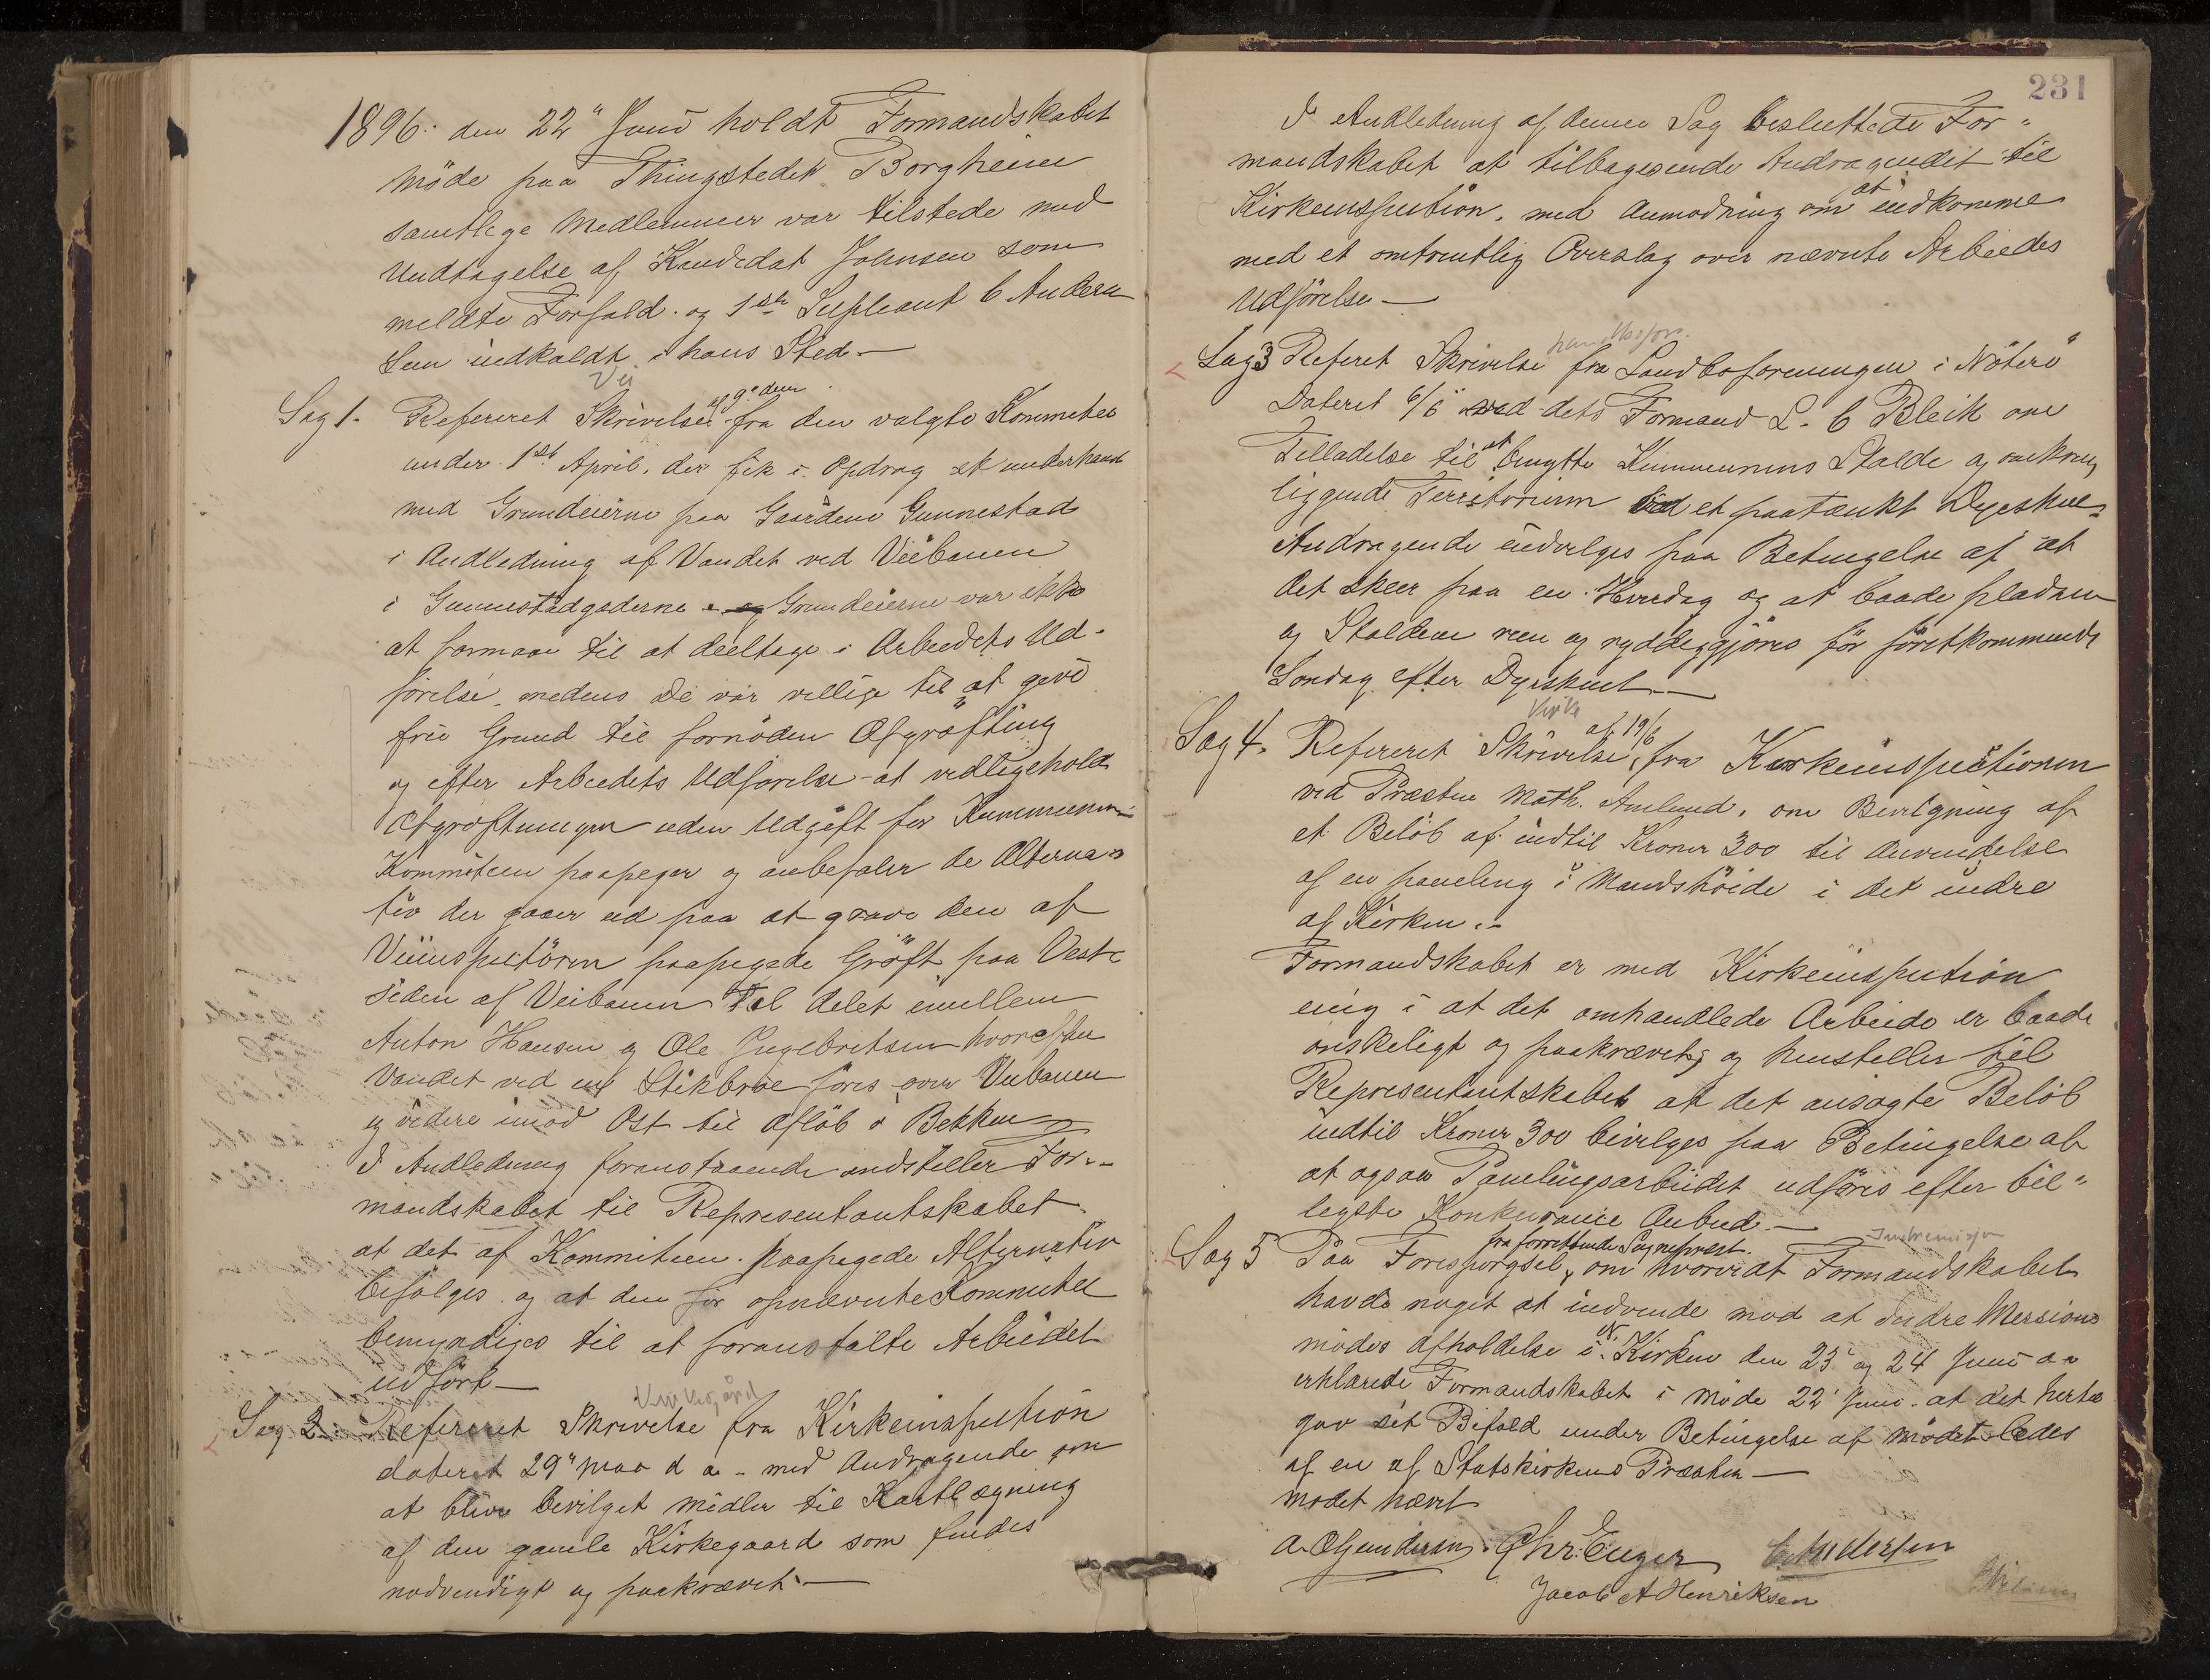 1896. den 22" Juni holdt Formandskabet
Möde paa Thingstedet Borgheim
samtlege Medlemmer var tilstede med
Undtagelse af Kandidat Johnsen som
meldte Forfald. og 1ste Supleant C Ander
sen indkaldt i hans Sted.—
Vei
Sag 1. Refereret Skrivelse af 9de dem fra den valgte Kommitee
under 1st April. der fik i Opdrag at underhand
med Grundeierne paa Gaarden Gunnestad
i Andledning af Vandet ved Veibanen
i Gunnestadgaderne. Grundeierne var ikke
at formaa til at deeltage i Arbeidets Ud-
förelse. medens De var vellige til at give
frie Grund til fornöden Afgröfting
og efter Arbeidets Udförelse at vedligehold
Afgröftningen uden Udgift for Kommunen
Kommiteen paapeger og anbefaler de Alterna=
tiv der gaaer ud paa at grave den af
Veiinspectören paapegede Gröft paa Vest
siden af Veibanen Til delet imellem
Anton Hansen og Ole Ingebretsen hvorefter
Vandet ved en Stikbroe föres over Veibanen
og videre imod Öst til Aflöb i Bekken
I Andledning foranstaaende indstiller For-
mandskabet til Representantskabet.
at det af Kommiteen paapegede Alternativ
befölges og at den för opnævnte Kommitee
bemyndiges til at foranstalte Arbeidet
udfört—
Kirkegård
Sag 2. Refereret Skrivelse fra Kirkeinspection
dateret 29" Mai d a - med Andragende om
at blive bevilget Midler til Kartlægning
af den gamle Kirkegaard som findes
nödvendigt og paakrævet.—
231
I Andledning af denne Sag besluttede For-
mandskabet at tilbagesende Andragendet til
Kirkeinspection. med Anmodning om at indkomme
med et omtrentlig Overslag over nævnte Arbeides
Udförelse—
Sag 3 Referet Skrivelse fra Landboforeningen i Nöterö
Dateret 6/6 ved dets Formand L. C Bleik om
Tilladelse til at benytte Kummunens Stalde og omkring
liggende Territorium ved et paatænkt Dyrskue.
Andragende indvilges paa Betingelse af at
det skeer paa en Hverdag og at baade pladsen
og Staldene reen og ryddeggjöres för förstkommende
Söndag efter Dyrskuet.—
Kirke
Sag 4. Refereret Skrivelse af 19/6 fra Kirkeinspectionen
ved Præsten Math. Amlund. om Bevilgning af
et Belöb af indtil Kroner 300 til Anvendelse
af en paneling i Mandshöide i det indre
af Kirken.-
Formandskabet er med Kirkeinspection
enig i at det omhandlede Arbeide er baade
önskeligt og paakrævet; og henstiller til
Representantskabet at det ansögte Belöb
indtil Kroner 300 bevilges paa Betingelse af
at ogsaa Panelingsarbeidet udföres efter bil-
legste Konkurance Anbud.—
Sag 5 Paa Forespörgsel fra forrettende Sogneprest. om hvorvidt Formandskabet
havde noget at indvende mod at Indre Missions
mödes Afholdelse i N. Kirken den 23 og 24 Juni d a
erklærede Formandskabet i Möde 22 Juni. at det hertil
gav sit Bifald under Betingelse af mödet ledes
af en af Statskirkens Præster—
Mödet hævet
A. Gundersen. Chr: Enger C. Andersen
Jacob A Henriksen